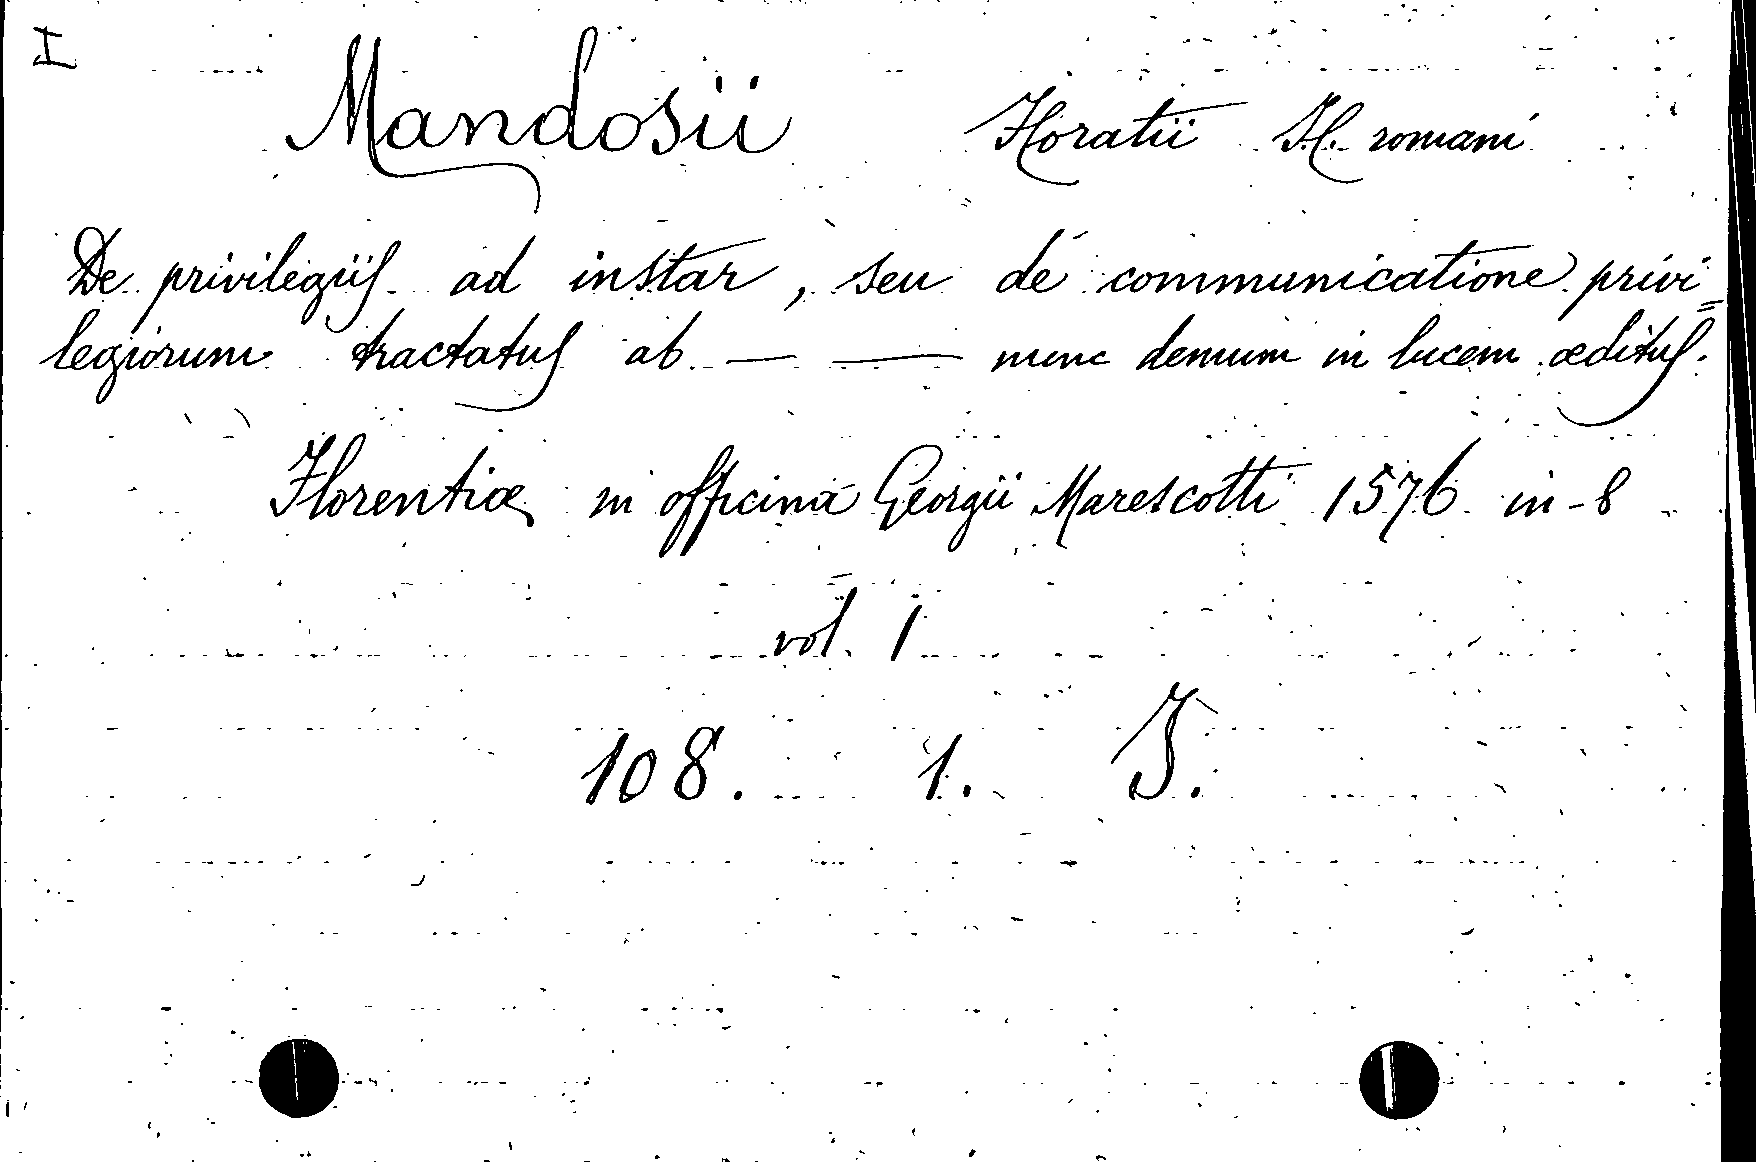 I
Mandosii Horatii H. romani
De privilegiis ad instar, seu de communicatione privi=
legiorum tractatus ab — — nunc demum in lucem æditus.
Florentiæ in officina Georgii Marescotti 1576 in-8
vol. 1
108. 1. I.